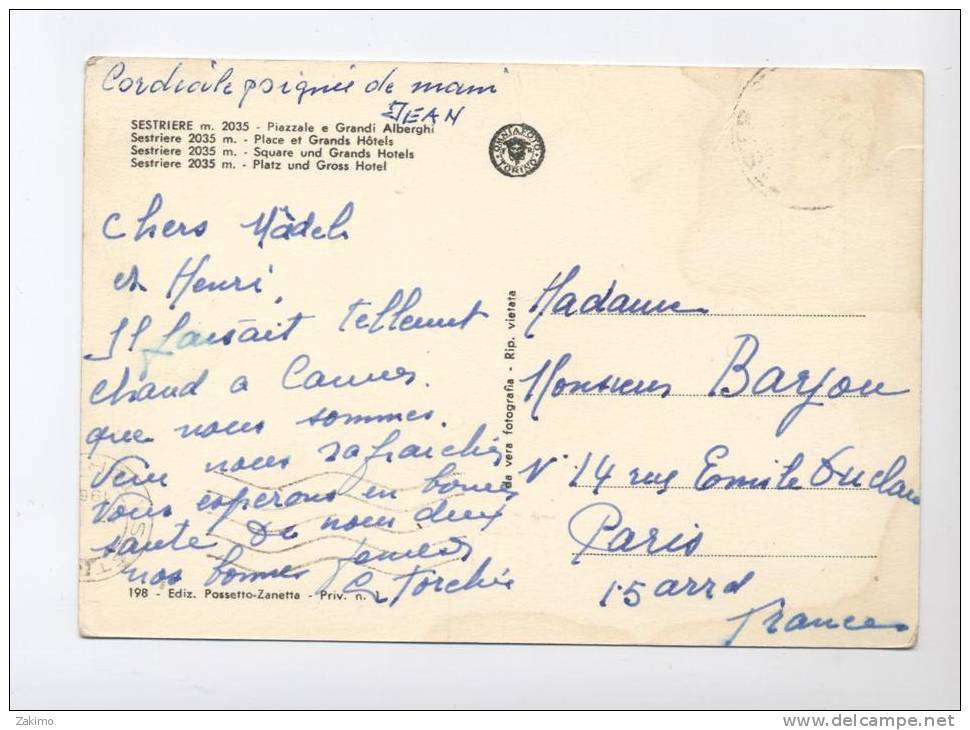 Cordiale poignée de main
JEAN
SESTRIERE m. 2035 - Piazzale e Grandi Alberghi
Sestriere 2035 m. - Place et Grands Hôtels
Sestriere 2035 m. - Square und Grands Hotels
Sestriere 2035 m. - Platz und Gross Hotel
OMNIAFOTO TORINO
Chers Madele
et Henri,
Il faisait tellement
chaud a Cannes.
que nous sommes.
Venu nous rafraichis
vous esperons en bonnes
sante. De nous deux
nos bonnes
Torchis
198 - Ediz. Possetto-Zanetta - Priv. n.
da vera fotografia - Rip. vietata
Madame
Monsieur Barjou
N° 14 rue Emile Duclau
Paris
15 arrd
France
Zakimo
www.delcampe.net